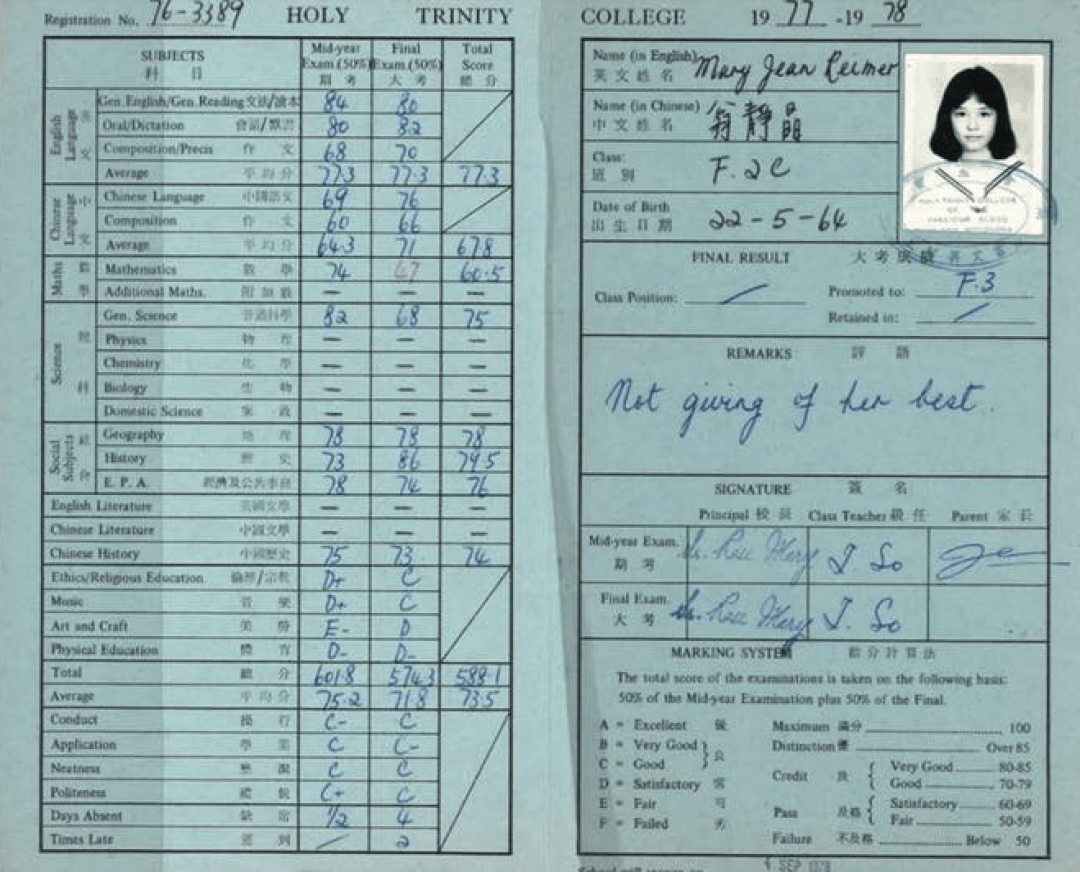 Registration No. 76-3389 HOLY TRINITY
SUBJECTS Mid-year Exam.(50%) Final Exam.(50%) Total Score
科 目 期 考 大 考 總 分
English Language 英 文
Gen.English/Gen.Reading 文法/讀本 84 80
Oral/Dictation 會話/默書 80 82
Composition/Precis 作 文 68 70
Average 平 均 分 77.3 77.3 77.3
Chinese Language 中 文
Chinese Language 中國語文 69 76
Composition 作 文 60 66
Average 平 均 分 64.3 71 67.8
Maths 數 學
Mathematics 數 學 74 47 60.5
Additional Maths. 附 加 數 — —
Science 理 科
Gen. Science 普通科學 82 68 75
Physics 物 理 — — —
Chemistry 化 學 — — —
Biology 生 物 — — —
Domestic Science 家 政 — — —
Social Subjects 社 會
Geography 地 理 78 78 78
History 歷 史 73 86 79.5
E. P. A. 經濟及公共事務 78 74 76
English Literature 英國文學 — — —
Chinese Literature 中國文學 — — —
Chinese History 中國歷史 75 73 74
Ethics/Religious Education 倫理/宗教 D+ C
Music 音 樂 D+ C
Art and Craft 美 勞 E- D
Physical Education 體 育 D- D-
Total 總 分 601.8 574.3 588.1
Average 平 均 分 75.2 71.8 73.5
Conduct 操 行 C- C
Application 學 業 C C-
Neatness 整 潔 C C
Politeness 禮 貌 C+ C
Days Absent 缺 席 1/2 4
Times Late 遲 到 / 2
COLLEGE 1977-1978
Name (in English) Mary Jean Reimer
英 文 姓 名
Name (in Chinese) 翁靜晶
中 文 姓 名
Class: F.2C
班 別
Date of Birth 22-5-64
出 生 日 期
FINAL RESULT 大 考 成 績
Class Position: / Promoted to: F.3
Retained in: /
REMARKS 評 語
Not giving of her best.
SIGNATURE 簽 名
Principal 校 長 Class Teacher 級 任 Parent 家 長
Mid-year Exam. J. So
期 考
Final Exam. J. So
大 考
MARKING SYSTEM 給 分 計 算 法
The total score of the examinations is taken on the following basis:
50% of the Mid-year Examination plus 50% of the Final.
A = Excellent 優 Maximum 滿分 100
B = Very Good } 良 Distinction 優 Over 85
C = Good Credit 良 { Very Good 80-85
Good 70-79
D = Satisfactory 常 Pass 及格 { Satisfactory 60-69
E = Fair 可 Fair 50-59
F = Failed 劣 Failure 不及格 Below 50
4 SEP 1978